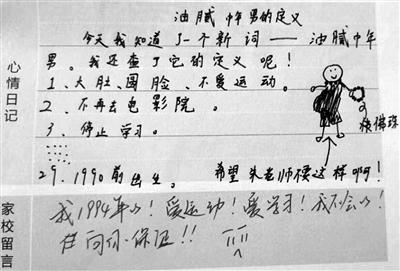 油腻中年男的定义
心情日记
今天我知道了一个新词——油腻中年
男。我还查了它的定义呢！
1、大肚、圆脸、不爱运动。
2、不再去电影院。
3、停止学习。
29、1990前出生。
希望朱老师不要这样啊！
家校留言
我1994年的！爱运动！爱学习！我不会的！
向你保证！！